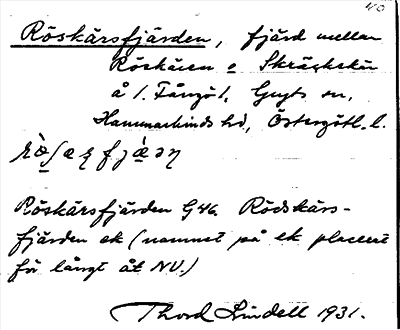 40
Röskärsfjärden, fjärd mellan
Röskären o Skräckskär
å 1. Fångö 1, Gryts sn,
Hammarkinds hd, Östergötl. l.
Röskärsfjärden G46. Rödskärs-
fjärden ek (namnet på ek placerat
för långt åt NV.)
Thord Lindell 1931.